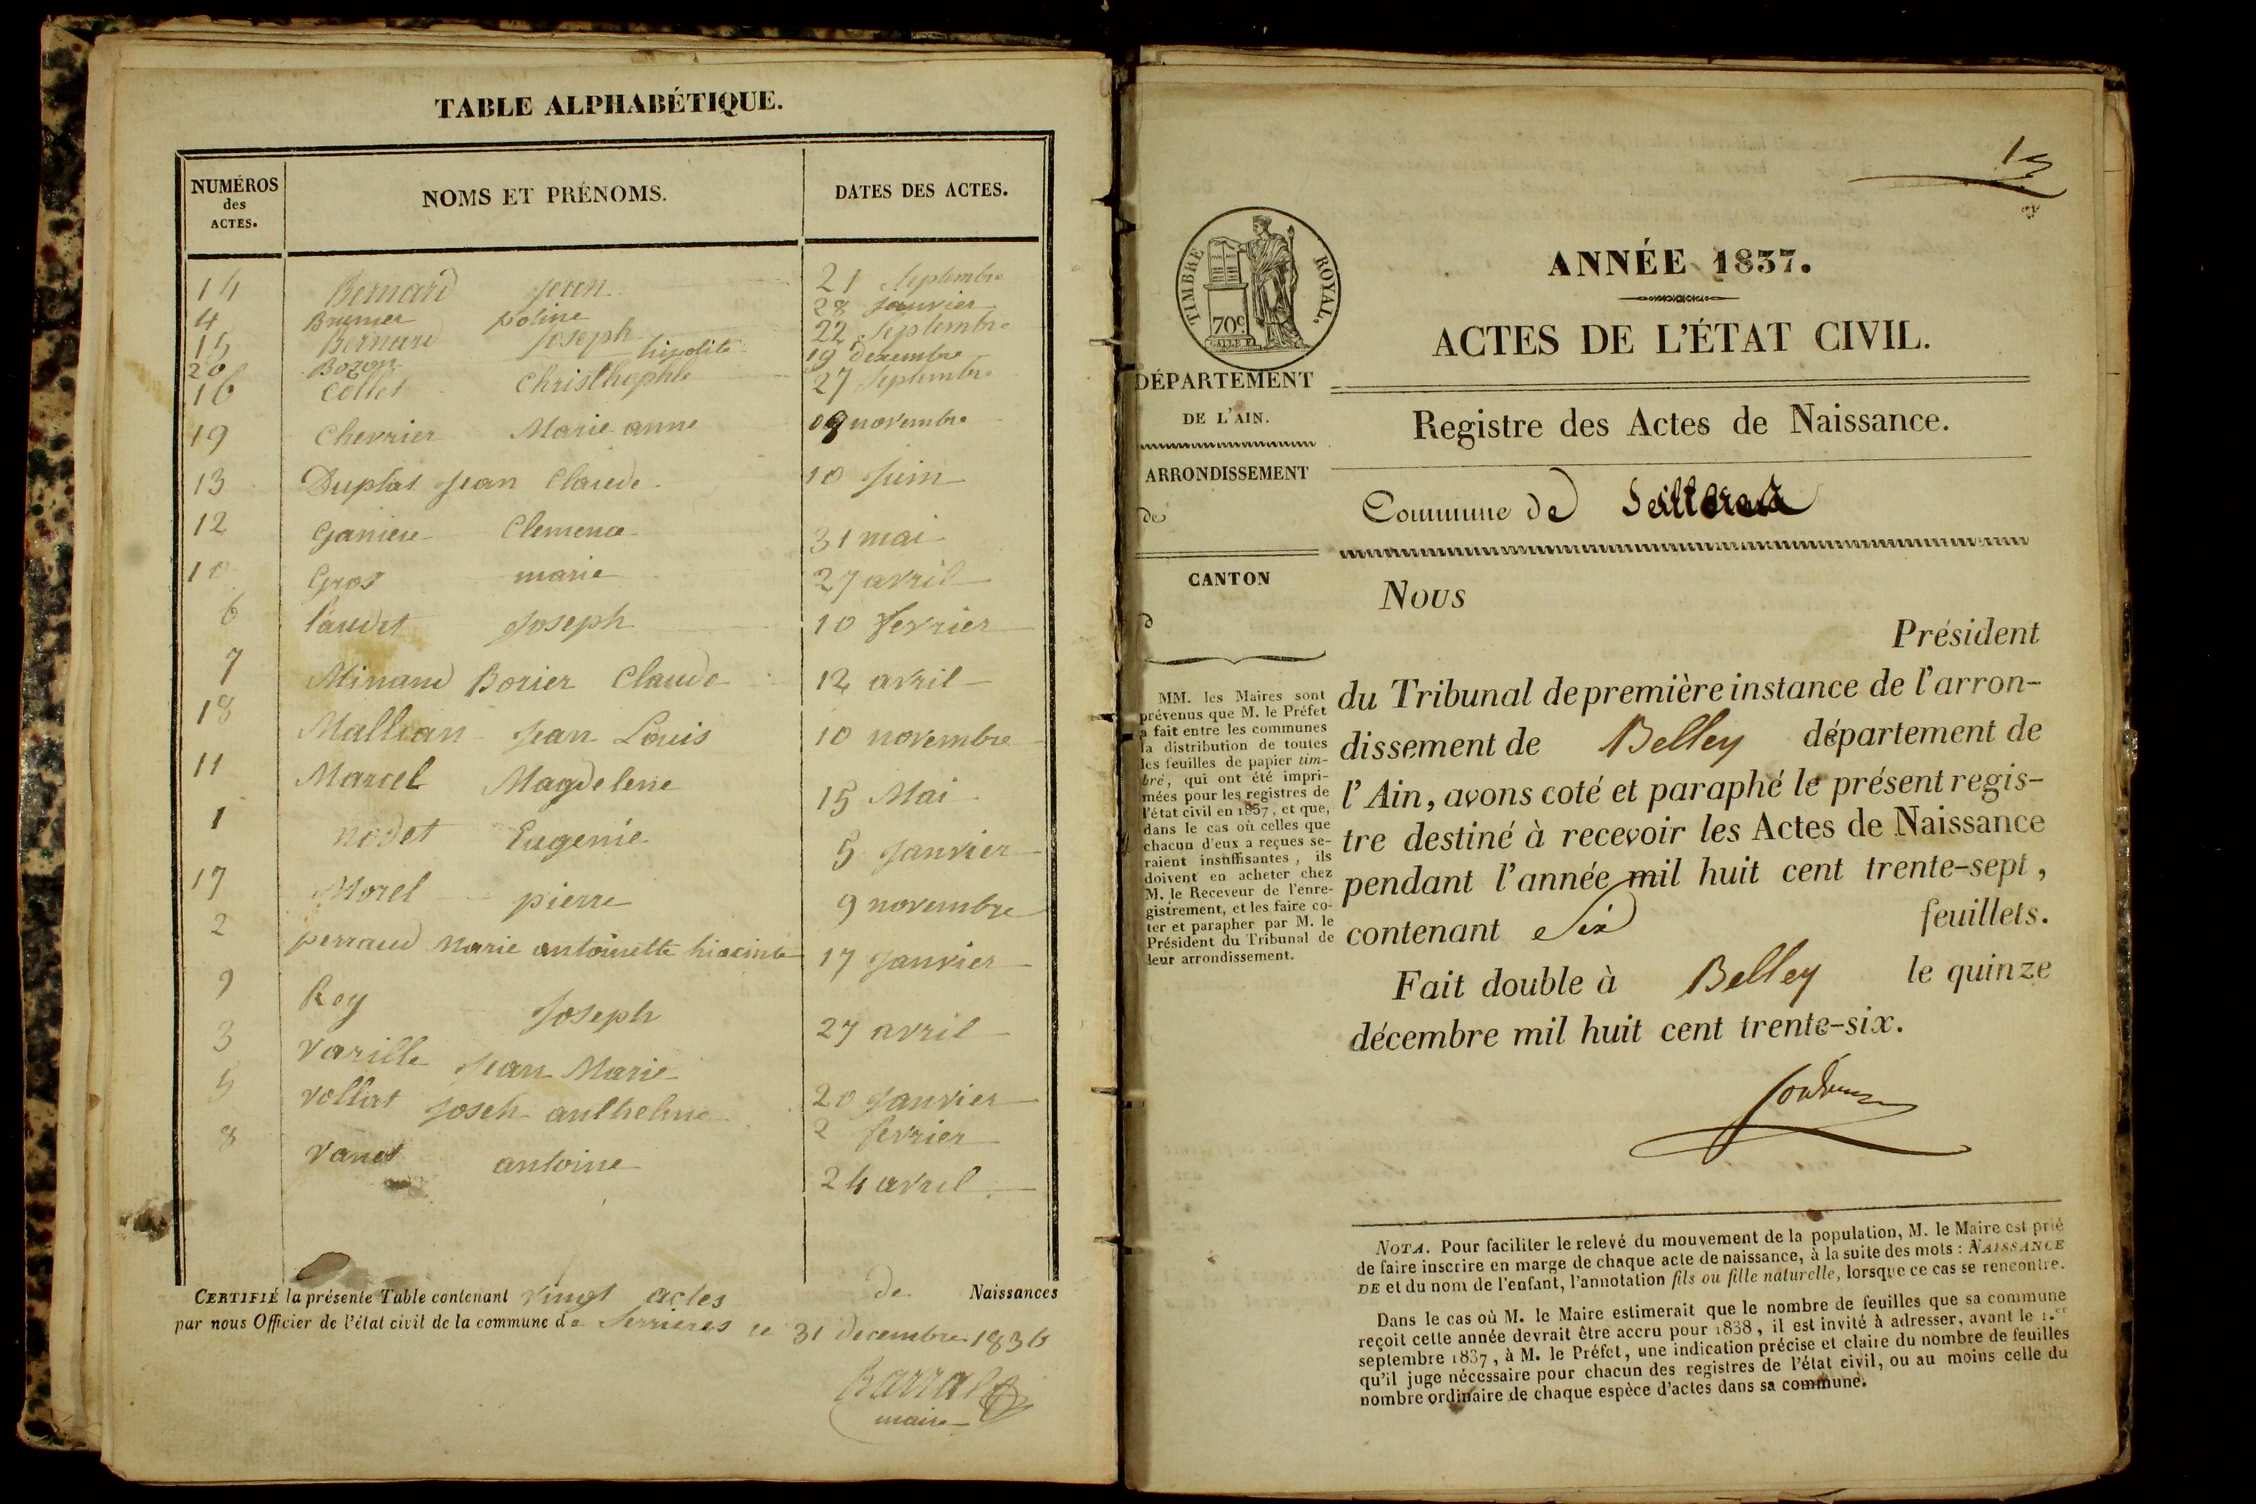 TABLE ALPHABÉTIQUE.
NUMÉROS des ACTES. NOMS ET PRÉNOMS. DATES DES ACTES.
14 Bernard Jean 21 Septembre
4 Brunier poline 28 Janvier
15 Bernard Joseph 22 Septembre
20 Bozon hipolite 19 decembre
16 Collet Christhophle 27 Septembre
19 Chevrier Marie anne 09 novembre
13 Duplat Jean Claude 10 Juin
12 Ganiere Clemence 31 mai
10 Gros marie 27 avril
6 Laudet Joseph 10 fevrier
7 Minand Borier Claude 12 avril
18 Mallian Jean Louis 10 novembre
11 Marcel Magdelene 15 Mai
1 nodet Eugenie 5 Janvier
17 Morel pierre 9 novembre
2 perraud Marie antoinette hiacinte 17 Janvier
9 Rey Joseph 27 avril
3 Varille Jean Marie 20 Janvier
5 Vollat Joseh anthelme 2 fevrier
8 Vanet antoine 24 avril
CERTIFIÉ la présente Table contenant vingt actes de Naissances
par nous Officier de l'état civil de la commune de Serrieres ce 31 decembre 1836
Barral
maire
TIMBRE ROYAL.
70c
ANNÉE 1837.
ACTES DE L'ÉTAT CIVIL.
DÉPARTEMENT
DE L'AIN.
Registre des Actes de Naissance.
ARRONDISSEMENT
de
Commune de
CANTON
d
MM. les Maires sont
prévenus que M. le Préfet
a fait entre les communes
la distribution de toutes
les feuilles de papier tim-
bré, qui ont été impri-
mées pour les registres de
l'état civil en 1837, et que,
dans le cas où celles que
chacun d'eux a reçues se-
raient insuffisantes, ils
doivent en acheter chez
M. le Receveur de l'enre-
gistrement, et les faire co-
ter et parapher par M. le
Président du Tribunal de
leur arrondissement.
Nous
Président
du Tribunal de première instance de l'arron-
dissement de Belley département de
l'Ain, avons coté et paraphé le présent regis-
tre destiné à recevoir les Actes de Naissance
pendant l'année mil huit cent trente-sept,
contenant Six feuillets.
Fait double à Belley le quinze
décembre mil huit cent trente-six.
NOTA. Pour faciliter le relevé du mouvement de la population, M. le Maire est prié
de faire inscrire en marge de chaque acte de naissance, à la suite des mots : NAISSANCE
DE et du nom de l'enfant, l'annotation fils ou fille naturelle, lorsque ce cas se rencontre.
Dans le cas où M. le Maire estimerait que le nombre de feuilles que sa commune
reçoit cette année devrait être accru pour 1838, il est invité à adresser, avant le 1.er
septembre 1837, à M. le Préfet, une indication précise et claire du nombre de feuilles
qu'il juge nécessaire pour chacun des registres de l'état civil, ou au moins celle du
nombre ordinaire de chaque espèce d'actes dans sa commune.